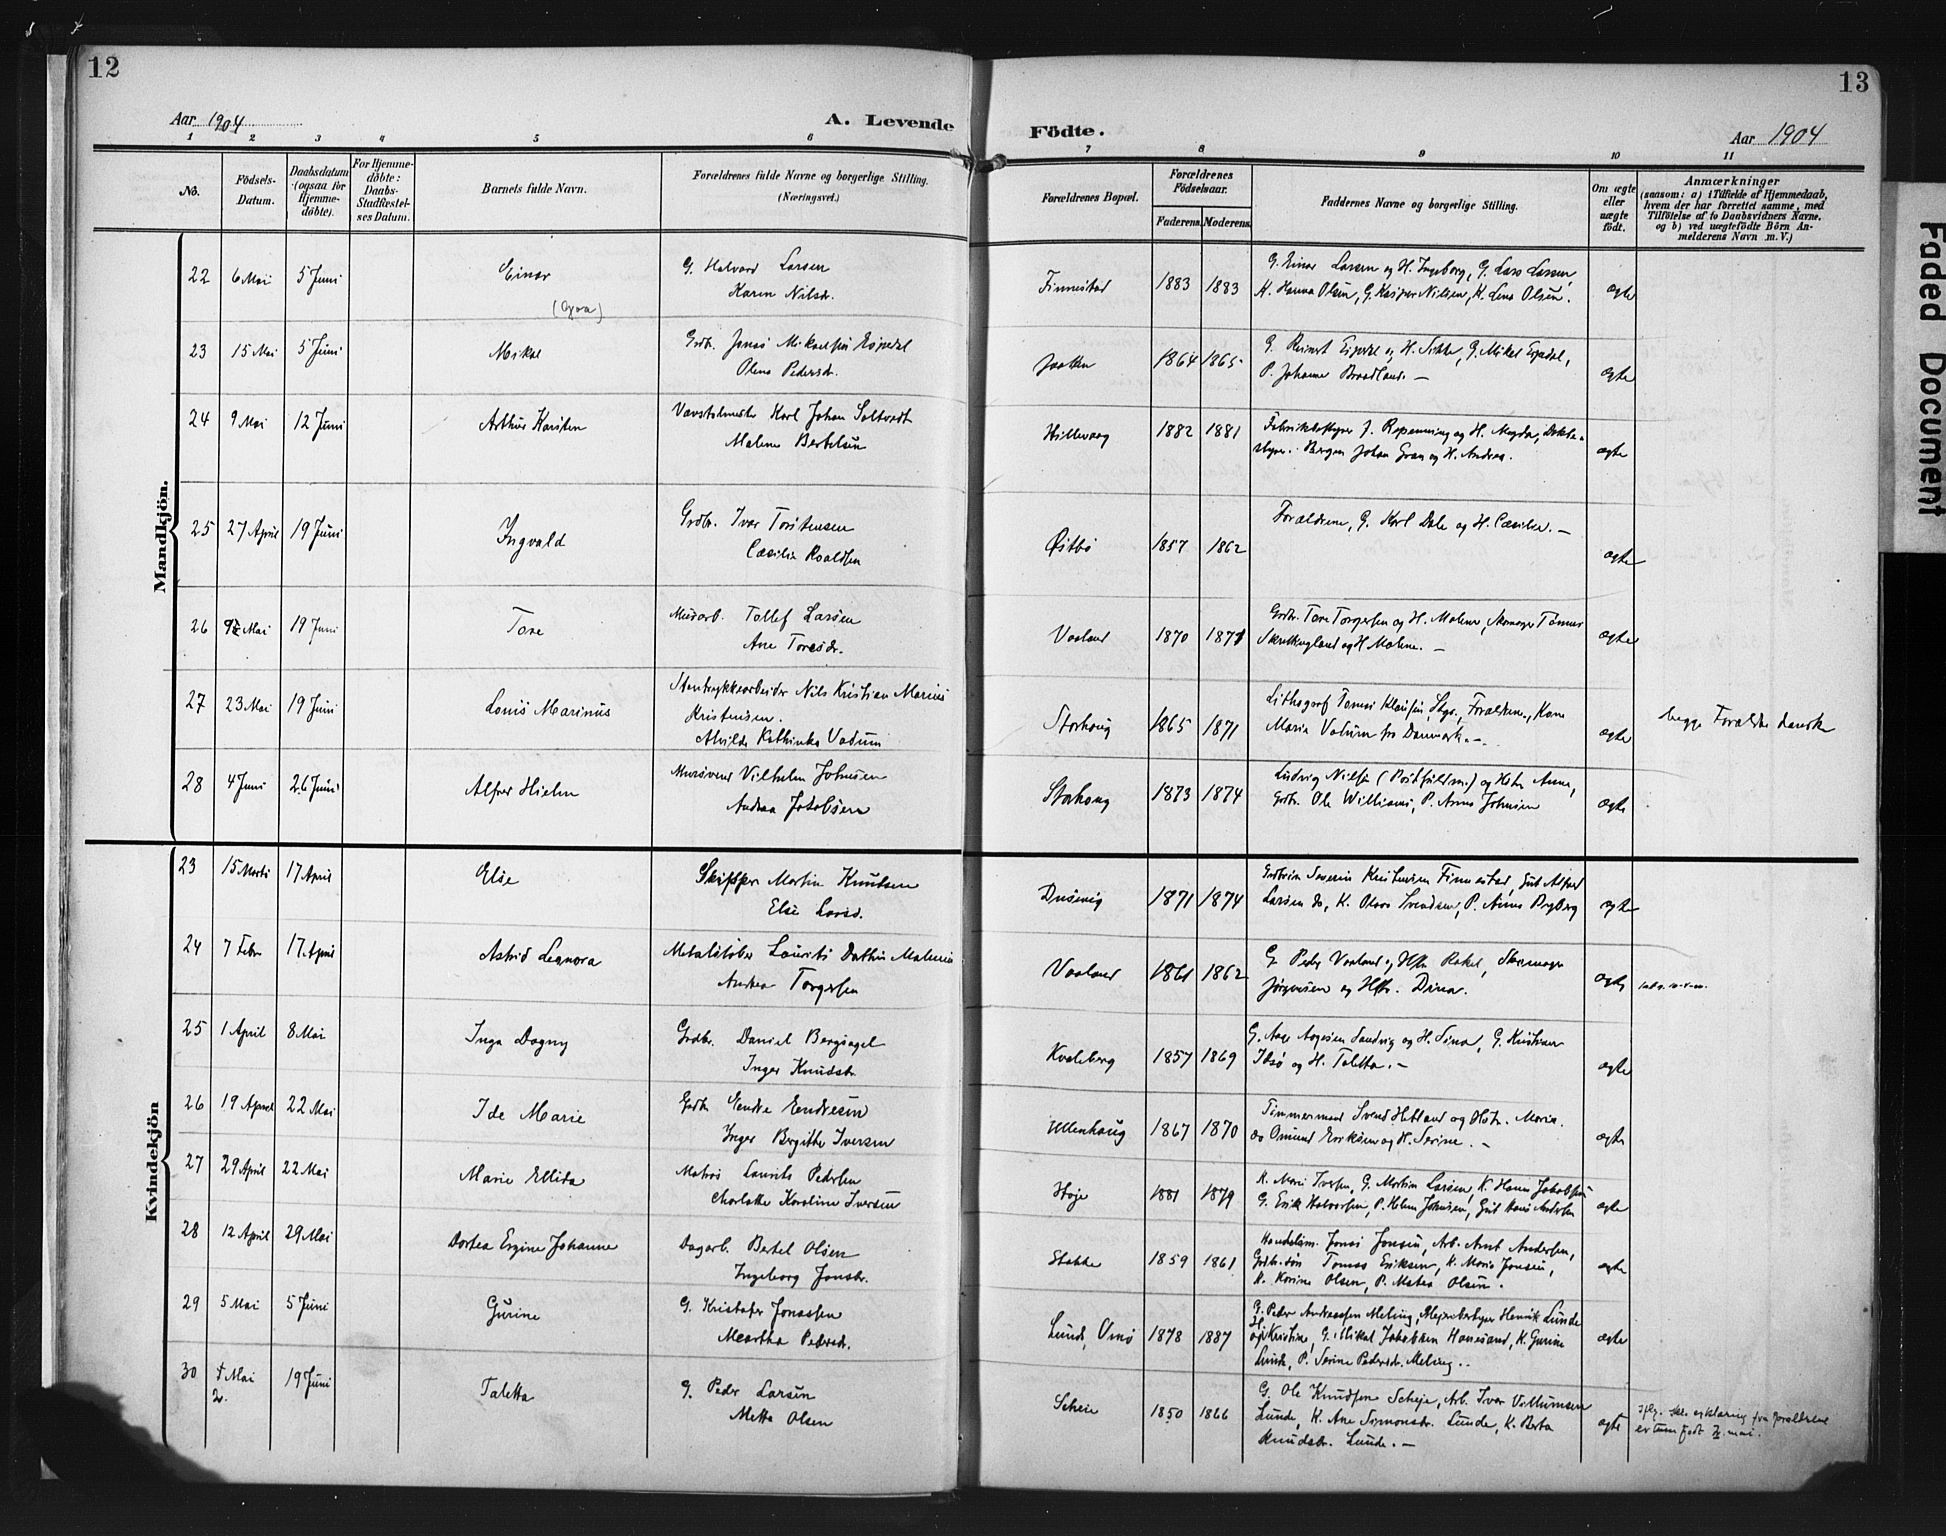 12
13
Aar 1904
A. Levende
Födte.
Aar 1904
1 2 3 4 5 6 7 8 9 10 11
No.
Födsels-
Datum.
Daabsdatum
(ogsaa for
Hjemme-
döbte).
For Hjemme-
döbte:
Daabs-
Stadfæstel-
ses Datum.
Barnets fulde Navn.
Forældrenes fulde Navne og borgerlige Stilling.
(Næringsvei.)
Forældrenes Bopæl.
Forældrenes
Födselsaar.
Faderens. Moderens.
Faddernes Navne og borgerlige Stilling.
Om ægte
eller
uægte
födt.
Anmærkninger
(saasom: a) i Tilfælde af Hjemmedaab,
hvem der har forrettet samme, med
Tilföielse af to Daabsvidners Navne.
og b) ved uægtefödte Börn An-
melderens Navn m. V.)
Mandkjön.
22 6 Mai 5 Juni Einar
G. Halvard Larsen
Karen Nilsdr.
Finnestad 1883 1883
G. Einar Larsen og H. Ingeborg, G. Lars Larsen,
K. Hanna Olsen, G. Kasper Nilsen, K. Lena Olsen.
ægte
23 15 Mai 5 Juni Mikal
Grdbr. Jonas Mikaelsen Espedal
Olena Pedersdr.
Jaatten 1864 1865
G. Reinert Espedal og H. Sikke, G. Mikal Espedal,
P. Johanne Braadland. —
ægte
24 9 Mai 12 Juni Arthur Karsten
Karl Johan Saltvedt
Malene Bertelsen
Hillevaag 1882 1881
J. Repenning og H. Magda,
Bergen Johan Gran og H. Andrea.
ægte
25 27 April 19 Juni Ingvald
Grdbr. Ivar Torstensen
Cæcilia Roaldsen
Østbø 1857 1862
Forældrene, G. Karl Dale og H. Cæcilie. —
ægte
26 Mai 19 Juni Tore
Murarb. Tollef Larsen
Ane Toresdr.
Vaaland 1870 1871
Grdbr. Tore Torgersen og H. Malene, Skomager Tønnes
og H. Malene. —
ægte
27 23 Mai 19 Juni Louis Marinus
Stentrykkearbeider Nils Kristian Marius
Kristensen.
Alvilda Kathinka Vadum
Storhaug 1865 1871
Lithograf Forældrene, Kone
Maria Vadum fra Danmark. —
ægte
begge Forældre danske
28 4 Juni 26 Juni Alfred Hjelm
Mursvend Vilhelm Johnsen
Andrea Jakobsen
Storhaug 1873 1874
Ludvig Nilsen (Postfuldm.) og Hstr. Anna,
Grdbr. Ole Williams, P. Anna Johnsen
ægte
Kvindekjön
23 15 Marts 17 April Else
Skipper Martin Knutsen
Else Larsd.
Dusevig 1871 1874
Severin Kristensen Finnestad, Gut Alfred
Larsen do, K. Olava Svendsen, P. Anna Rygberg
ægte
24 7 Febr 17 April Astrid Leonora
Metalstøber Laurits Malenius
Andrea Torgersen
Vaaland 1861 1862
G. Peder Vaaland og Hstr Rakel, Skomager
Jørgensen og Hstr. Dina.
ægte
25 1 April 8 Mai Inga Dagny
Grdbr. Daniel Bergsagel
Inger Knudsdr.
Kvaleberg 1857 1869
G. Aage Aagesen Sandvig og H. Sina, G. Kristian
Idsø og H. Taletta. —
ægte
26 19 April 22 Mai Ida Marie
Grdbr. Endre Endresen
Inger Bergitte Iversen
Ullenhaug 1867 1870
Timmermand Svend Hetland og Hstr. Maria.
do Omund Eriksen og H. Serine. —
ægte
27 29 April 22 Mai Marie Ellida
Matros Laurits Pedersen
Charlotte Karoline Iversen
Høje 1881 1879
K. Mari Iversen, G. Martin Larsen, K. Hanna Jakobsen
G. Erik Halvorsen, P. Helene Johnsen, Gut Hans Andersen
ægte
28 12 April 29 Mai Dortea Ergine Johanne
Dagarb. Bertel Olsen
Ingeborg Jonsdr.
Stokke 1859 1861
Handelsm. Jonas Jonsen, Arb. Arnt Andersen,
Grdbr.søn Tomas Eriksen, K. Maria Jonsen,
K. Karine Olsen, P. Matea Olsen.
ægte
29 5 Mai 5 Juni Gurine
G. Kristofer Jonassen
Meartha Pedersdr.
Lunde, Vinø 1878 1887
G. Peder Andreassen Meling, Mejeribestyrer Henrik Lunde
og H. Kristine, G. Mikal Jakobsen Hanesand, K. Gurine
Lunde, P. Serine Pedersdr. Meling. —
ægte
30 Mai
2. 19 Juni Taletta
G. Peder Larsen
Metta Olsen
Scheie 1850 1866
G. Ole Knudsen Scheje, Arb. Iver Villumsen
Lunde, K. Ane Simonsdr. Lunde, K. Berta
Knudsdr. Lunde. —
ægte
iflg. skr. erklæring fra forældrene
er barn født 2. mai.
Faded Document